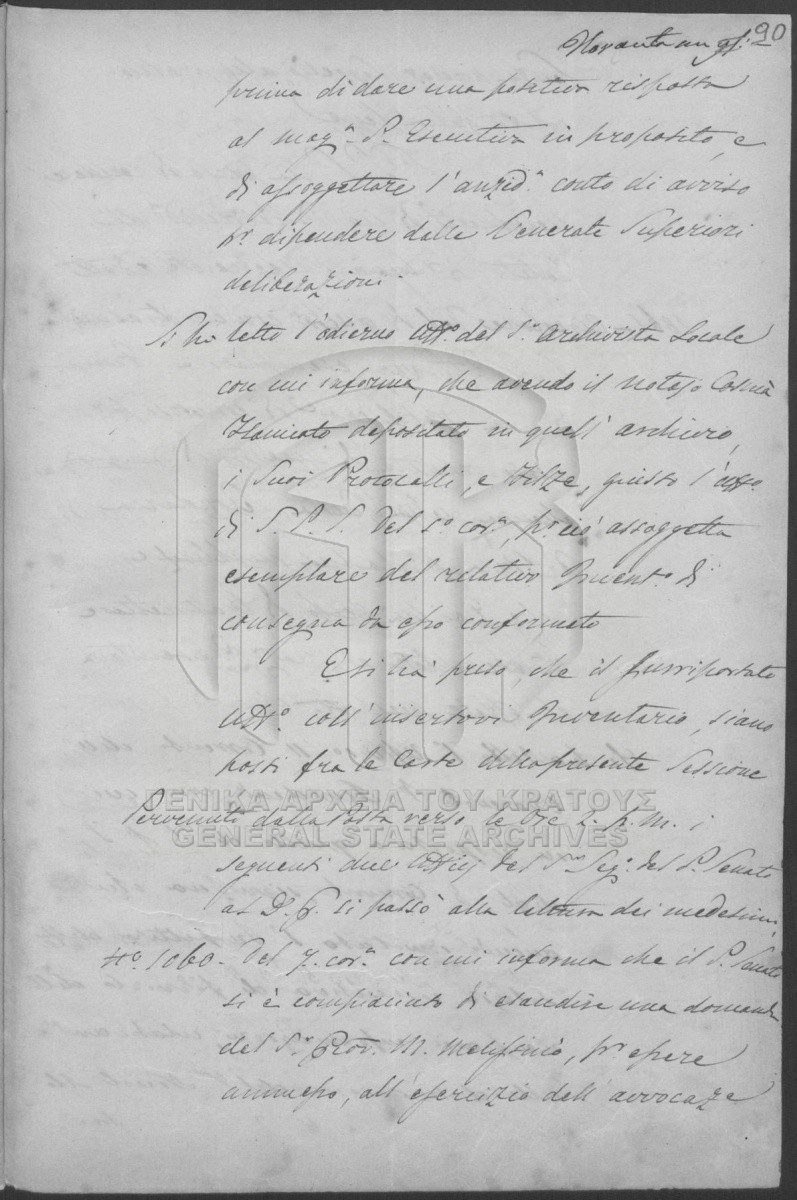 90
Novanta un
prima di dare una positiva risposta
al magn. P. Esecutivo in proposito, e
di assoggettare l'anzid.ª conto di avviso
pr dipendere dalle Venerate Superiori
deliberazioni.
Si ha letto l'odierno uff.º del S.r Archivista Locale
con cui informa, che avendo il notajo Cosmà
depositato in quell'archivio,
i suoi Protocolli, e filze, giusto l'uff.º
di S. P. S. del 1.º cor.e, pr ciò assoggetta
esemplare del relativo Invent.º di
consegna da esso conformato
E si hà preso, che il surriportato
uff.º coll'insertovi Inventario, siano
posti fra le Carte della presente Sessione
Pervenuti dalla Posta verso le Ore 2. p.m. i
seguenti due ufficj del S.r Seg.º del P. Senato
al D. G. si passò alla lettura dei medesimi,
Nº. 1060. Del 7. cor.e con cui informa che il P. Senato
si è compiaciuto di esaudire una domanda
del S.r Gio. M. Melissinò, pr essere
ammesso, all'esercizio dell'avvocaze
ΓΕΝΙΚΑ ΑΡΧΕΙΑ ΤΟΥ ΚΡΑΤΟΥΣ
GENERAL STATE ARCHIVES